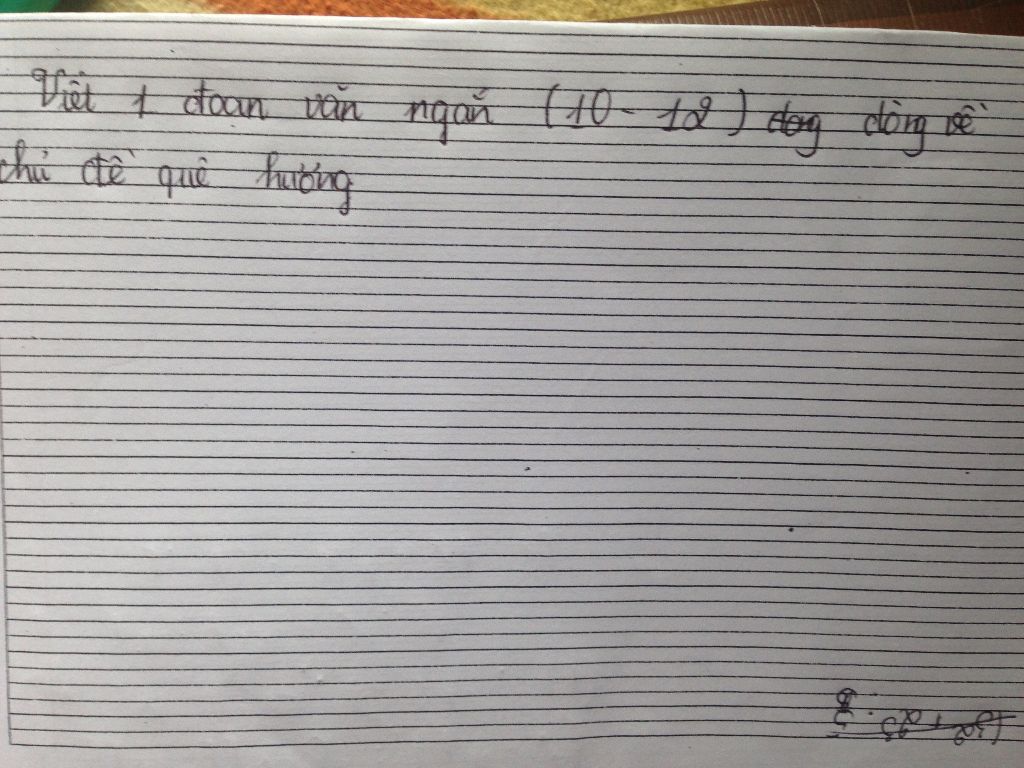 Viết 1 đoan văn ngắn (10 - 12) dog dòng về
chủ đề quê hương